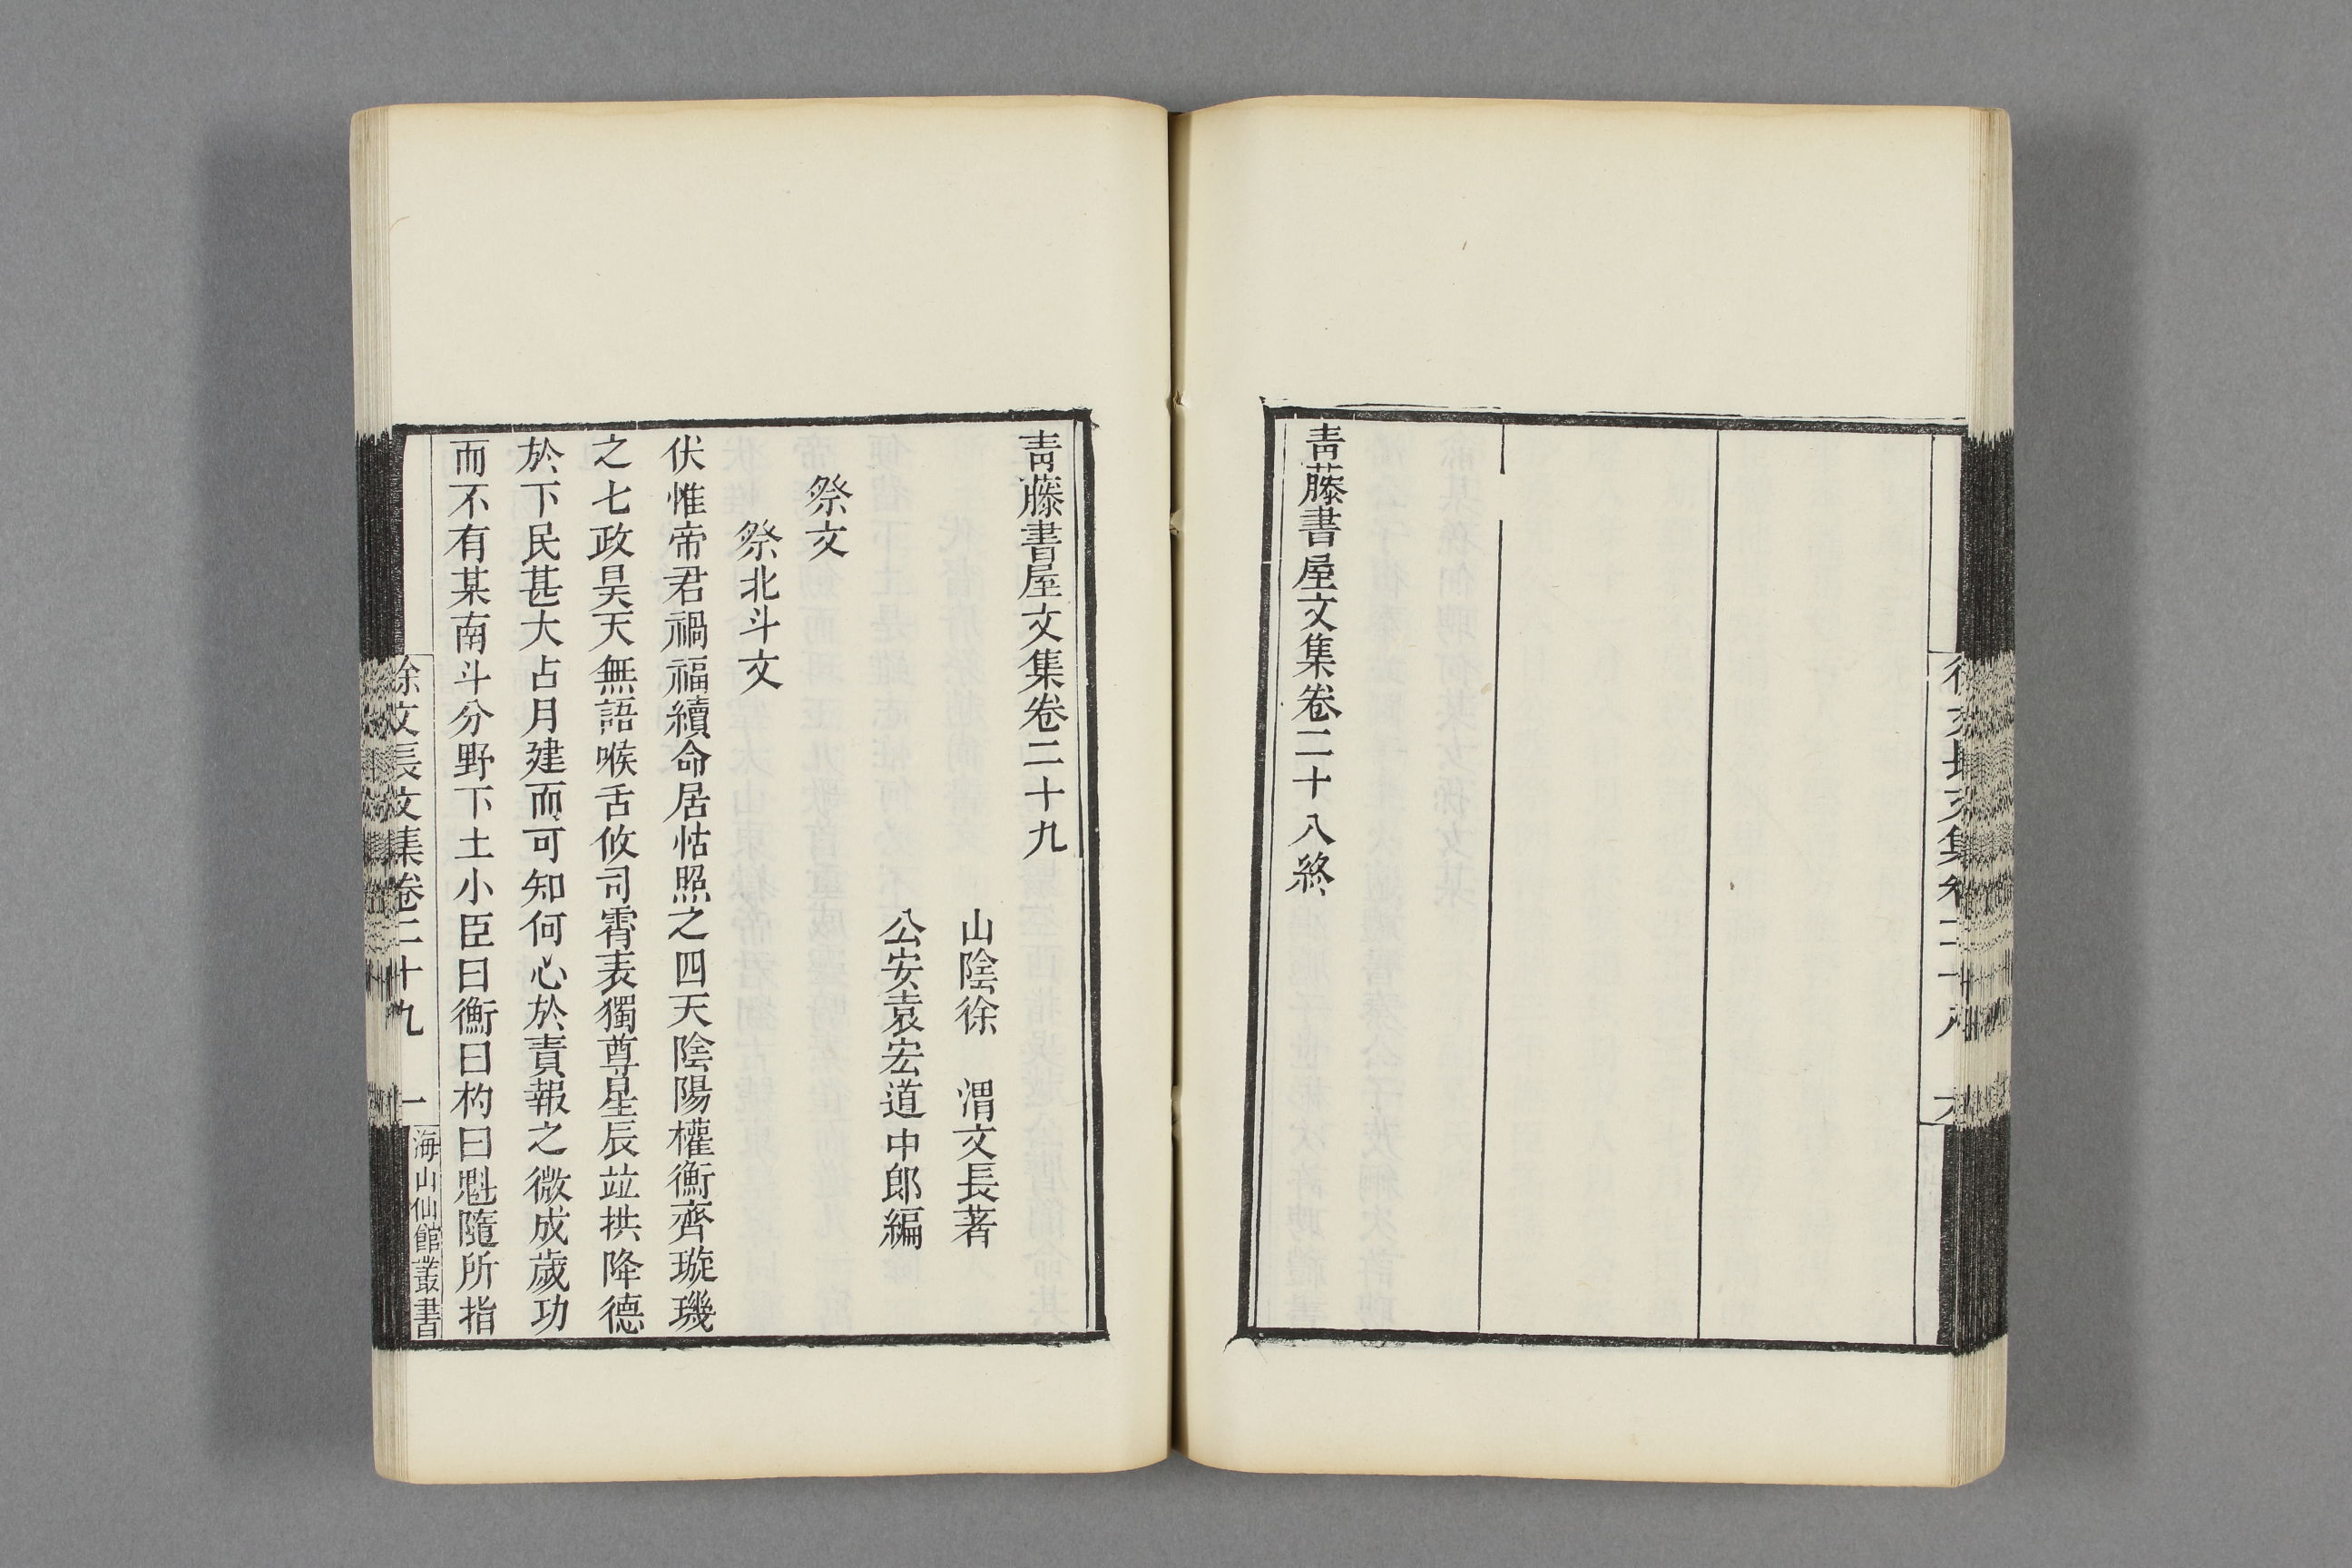 青藤書屋文集卷二十八終
青藤書屋文集卷二十九
山陰徐　渭文長著
公安袁宏道中郎編
祭文
祭北斗文
伏惟帝君禍福續命居怙照之四天陰陽權衡齊璇璣
之七政昊天無語喉舌攸司霄表獨尊星辰竝拱降德
於下民甚大占月建而可知何心於責報之微成歲功
而不有某南斗分野下土小臣曰衡曰杓曰魁隨所指
徐文長文集卷二十九
一
海山仙館叢書